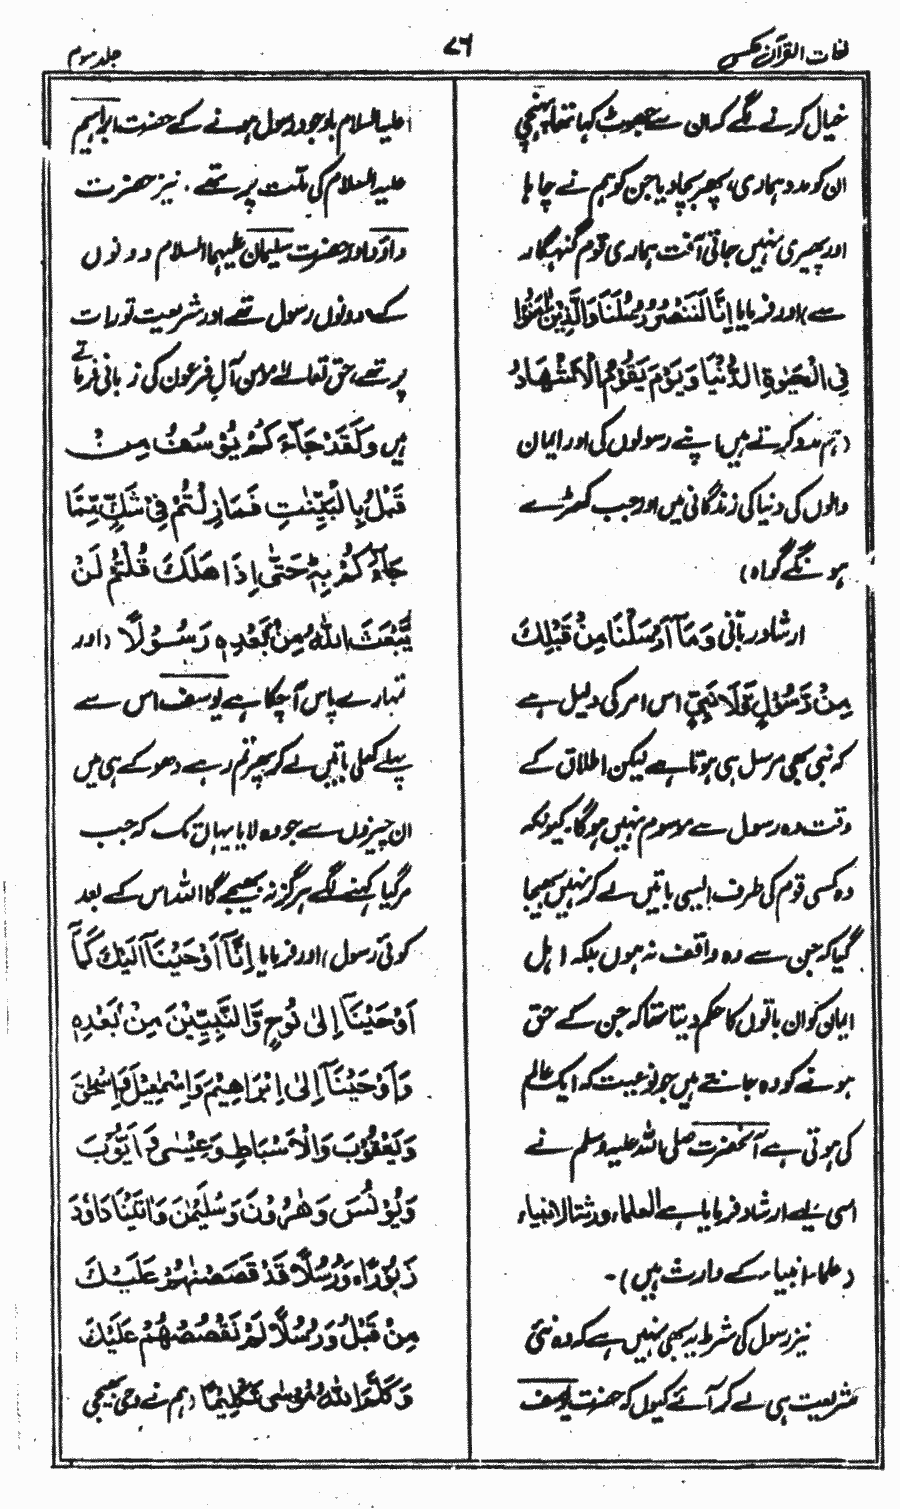 لغات القرآن عکسی
۷۶
جلد سوم
خیال کرنے لگے کہ ان سے جھوٹ کہا تھا، پہنچی
ان کو مدد ہماری، پھر بچا دیا جن کو ہم نے چاہا
اور پھیری نہیں جاتی آفت ہماری قوم گنہگار
سے) اور فرمایا اِنَّا لَنَنْصُرُ رُسُلَنَا وَالَّذِيْنَ اٰمَنُوْا
فِى الْحَيٰوةِ الدُّنْيَا وَيَوْمَ يَقُوْمُ الْاَشْهَادُ
(ہم مدد کرتے ہیں اپنے رسولوں کی اور ایمان
والوں کی دنیا کی زندگانی میں اور جب کھڑے
ہونگے گواہ)
ارشاد ربانی وَمَآ اَرْسَلْنَا مِنْ قَبْلِكَ
مِنْ رَّسُوْلٍ وَّلَا نَبِيٍّ اس امر کی دلیل ہے
کہ نبی بھی مرسل ہی ہوتا ہے لیکن اطلاق کے
وقت وہ رسول سے موسوم نہیں ہوگا۔ کیونکہ
وہ کسی قوم کی طرف ایسی باتیں لے کر نہیں بھیجا
گیا کہ جن سے وہ واقف نہ ہوں بلکہ اہل
ایمان کو ان باتوں کا حکم دیتا تھا کہ جن کے حق
ہونے کو وہ جانتے ہیں جو نوعیت کہ ایک عالم
کی ہوتی ہے آنحضرت صلی اللہ علیہ وسلم نے
اسی لیے ارشاد فرمایا ہے العلماء ورثۃ الانبیاء
(علماء انبیاء کے وارث ہیں)۔
نیز رسول کی شرط یہ بھی نہیں ہے کہ وہ نئی
شریعت ہی لے کر آئے کیوں کہ حضرت یوسف
علیہ السلام باوجود رسول ہونے کے حضرت ابراہیم
علیہ السلام کی ملت پر تھے۔ نیز حضرت
داؤد اور حضرت سلیمان علیہما السلام دونوں
کے دونوں رسول تھے اور شریعت تورات
پر تھے، حق تعالےٰ مومن آل فرعون کی زبانی فرماتے
ہیں وَلَقَدْ جَآءَ كُمْ يُوْسُفُ مِنْ
قَبْلُ بِالْبَيِّنٰتِ فَمَا زِلْتُمْ فِىْ شَكٍّ مِّمَّا
جَآءَ كُمْ بِهٖ حَتّٰى اِذَا هَلَكَ قُلْتُمْ لَنْ
يَّبْعَثَ اللّٰهُ مِنْ بَعْدِهٖ رَسُوْلًا (اور
تمہارے پاس آچکا ہے یوسف اس سے
پہلے کھلی باتیں لے کر پھر تم رہے دھوکے ہی میں
ان چیزوں سے جو وہ لایا یہاں تک کہ جب
مر گیا کہنے لگے ہرگز نہ بھیجے گا اللہ اس کے بعد
کوئی رسول) اور فرمایا اِنَّآ اَوْحَيْنَآ اِلَيْكَ كَمَآ
اَوْحَيْنَآ اِلٰى نُوْحٍ وَّالنَّبِيّٖنَ مِنْ بَعْدِهٖ
وَاَوْحَيْنَآ اِلٰى اِبْرَاهِيْمَ وَاِسْمٰعِيْلَ وَاِسْحٰقَ
وَيَعْقُوْبَ وَالْاَسْبَاطِ وَعِيْسٰى وَاَيُّوْبَ
وَيُوْنُسَ وَهٰرُوْنَ وَسُلَيْمٰنَ وَاٰتَيْنَا دَاوٗدَ
زَبُوْرًا، وَرُسُلًا قَدْ قَصَصْنٰهُمْ عَلَيْكَ
مِنْ قَبْلُ وَرُسُلًا لَّمْ نَقْصُصْهُمْ عَلَيْكَ
وَكَلَّمَ اللّٰهُ مُوْسٰى تَكْلِيْمًا (ہم نے وحی بھیجی